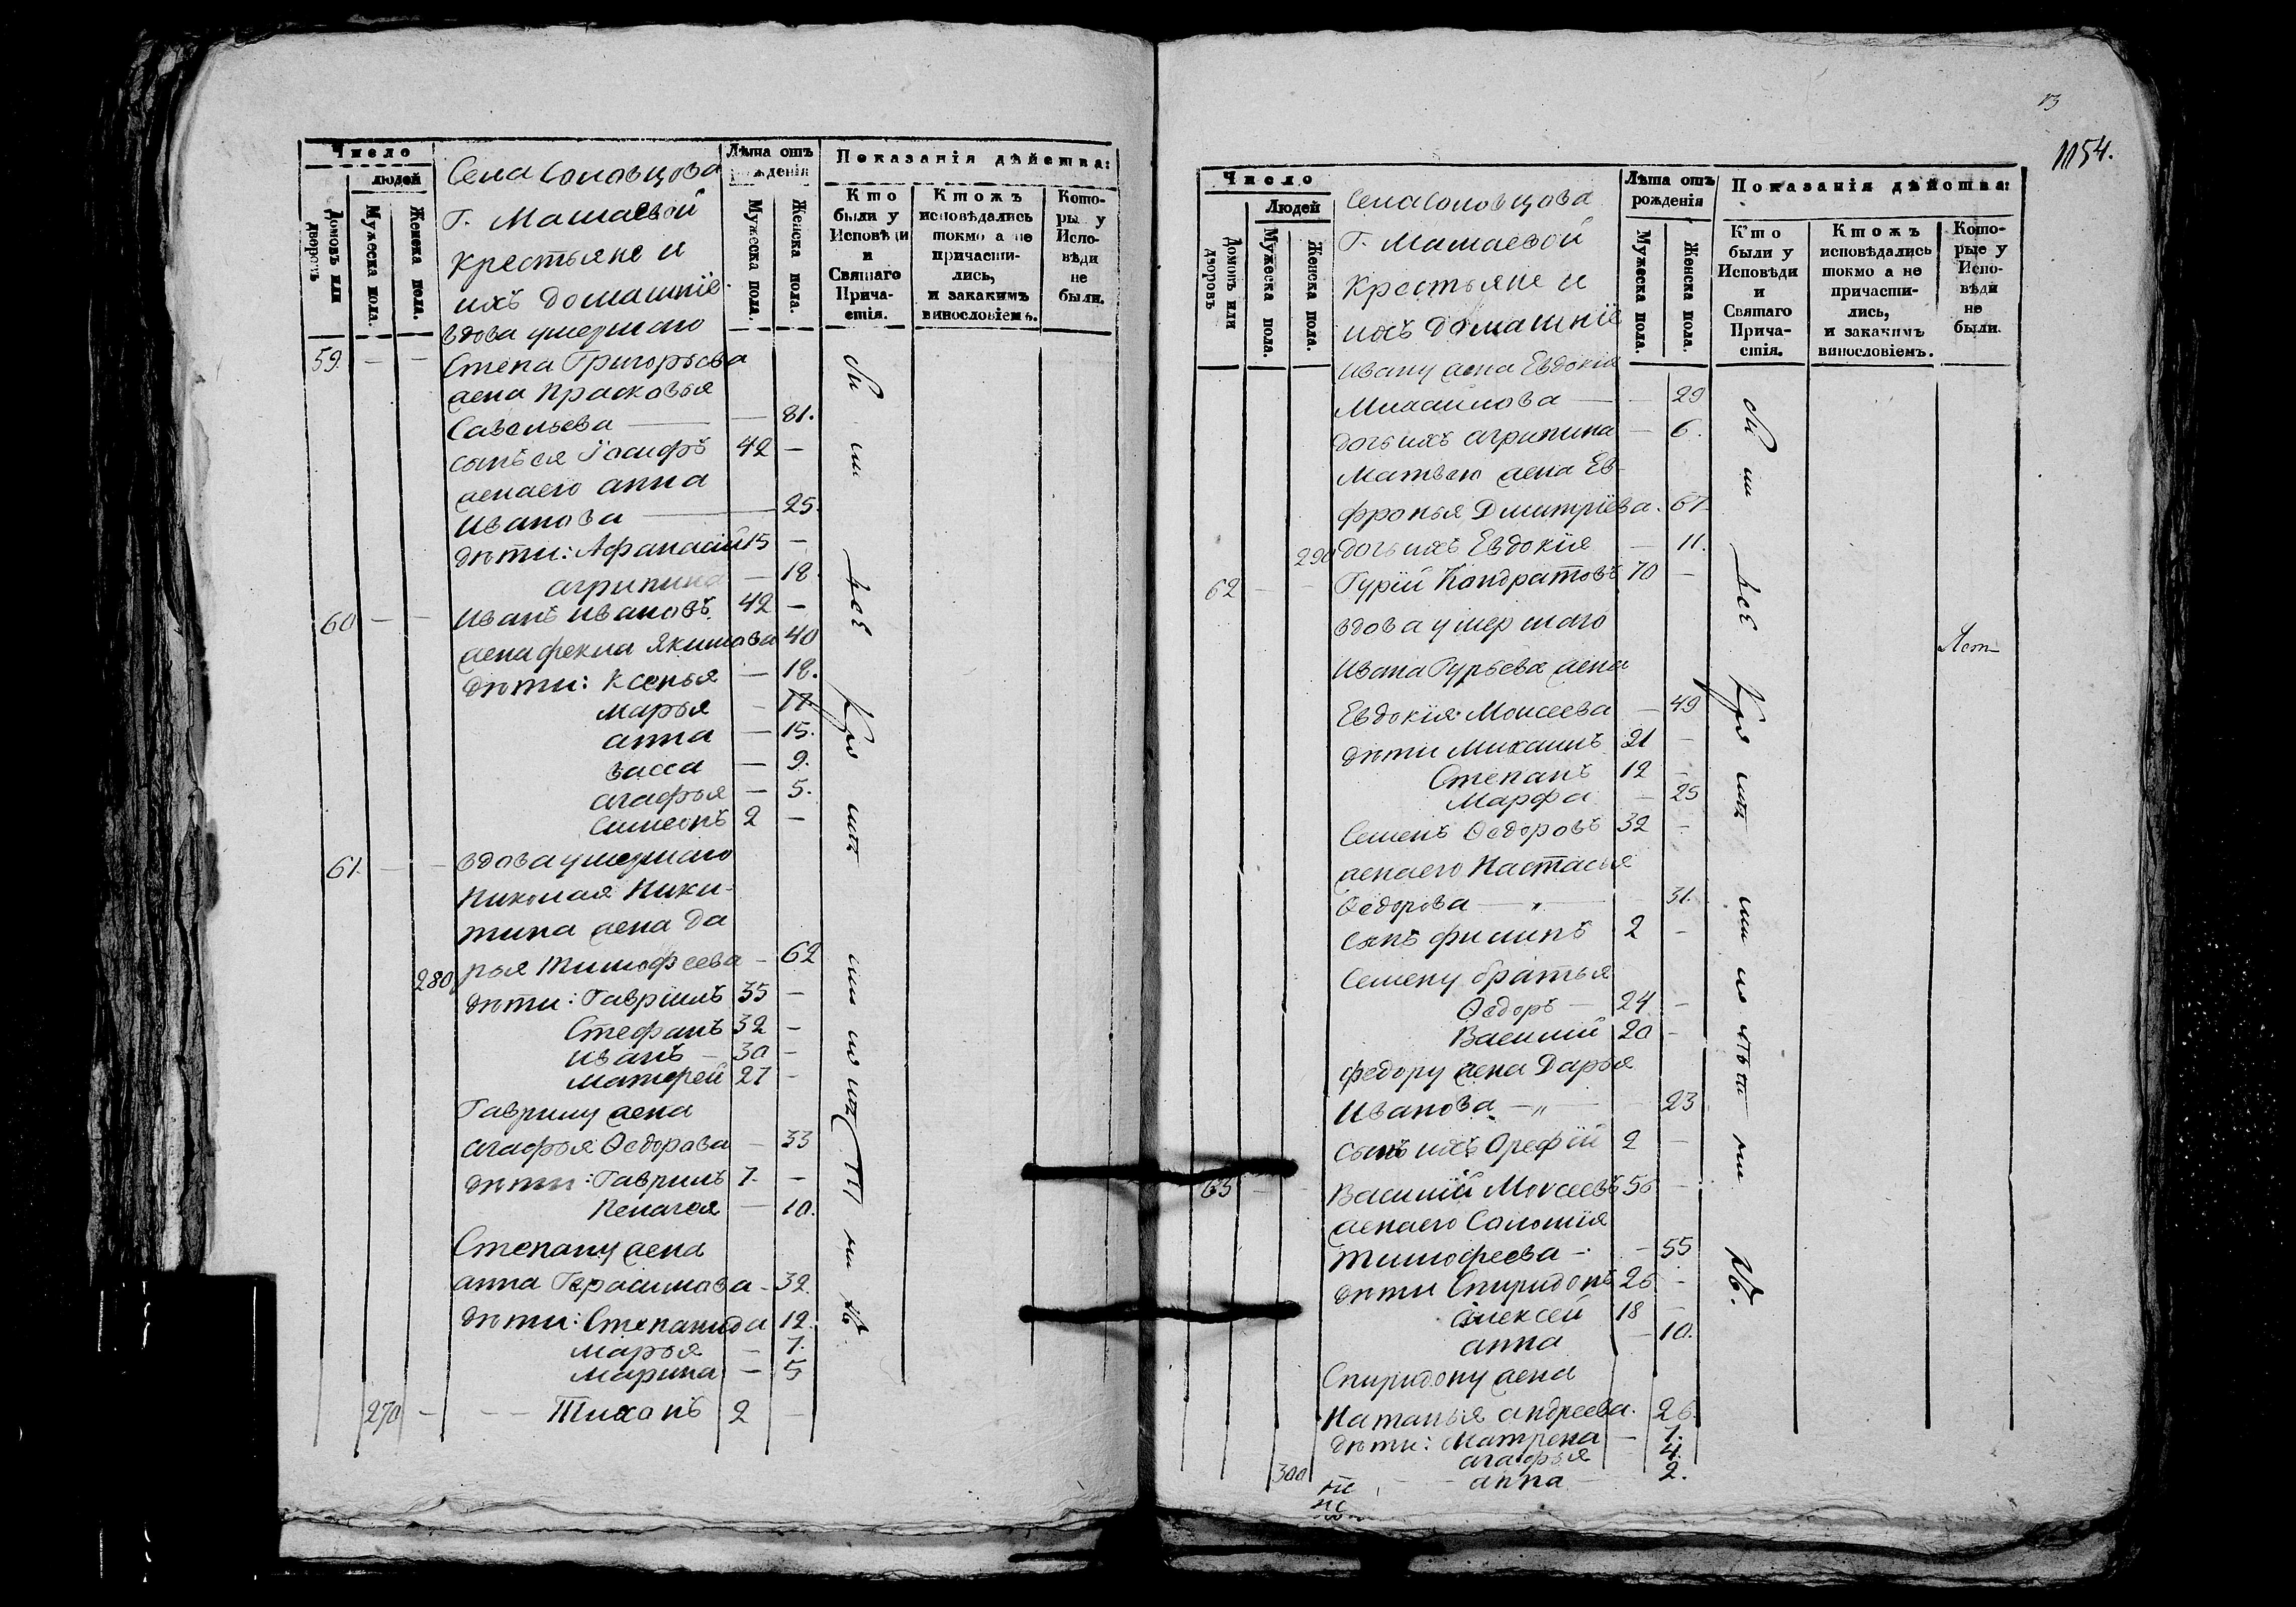 13
1154.
Число
людей
Домовъ или дворовъ
Мужеска пола.
Женска пола.
Села Соловцова
Г. Мамаевой
крестьяне и
ихъ домашніе.
Лѣта отъ рожденія
Мужеска пола.
Женска пола.
Показанія дѣйства:
Кто были у Исповѣди и Святаго Причастія.
Ктожъ исповѣдались токмо а не причастились, и закакимъ винословіемъ.
Которы у Исповѣди не были.
вдова умершаго
59. — — Степа Григорьева
жена Прасковья
Савельева — 81.
сынъ ея Іосифъ 42 —
жена его анна
Иванова — 25.
дѣти: Афанасій 15 —
агрипина — 18.
60 — — Иванъ Ивановъ 42 —
жена фекла Якимова 40
дѣти: Ксенья — 18.
марья — 17
анна — 15.
васса — 9.
агафья — 5.
Симеонъ 2 —
61. — — вдова умершаго
Николая Ники-
тина жена Да
280 рья Тимофеева — 62
дѣти: Гавріилъ 35 —
Стефанъ 32 —
Иванъ — 30 —
Матфей 27 —
Гаврилу жена
агафья Ѳедорова — 33
дѣти: Гаврилъ 7. —
Пелагея — 10.
Степану жена
анна Герасимова — 32.
дѣти: Степанида 12.
Марья — 7.
Марина — 5
270 — — Тихонъ 2 —
Число
Людей
Домовъ или дворовъ
Мужеска пола.
Женска пола.
Села Соловцова
Г. Мамаевой
Крестьяне и
ихъ домашніе
Лѣта отъ рожденія
Мужеска пола.
Женска пола.
Показанія дѣйства:
Кто были у Исповѣди и Святаго Причастія.
Ктожъ исповѣдались токмо а не причастились, и закакимъ винословіемъ.
Которые у Исповѣди не были.
Ивану жена Евдокія
Михаилова — — 29
дочь ихъ агрипина — 6.
Матвею жена Ев-
фронья Дмитріева. 67
290 дочь ихъ Евдокія — 11.
62 — — Гурій Кондратовъ 70 —
вдова умершаго
Ивана Гурьева жена
Евдокія Моисеева — 49
дѣти Михаилъ 21 —
Степанъ 12 —
Марфа — 25
Семенъ Ѳедоровъ 32 —
жена его Настасья
Ѳедорова — „ — 31.
сынъ филипъ 2 —
Семену братья
Ѳедоръ — 24 —
Василій 20 —
федору жена Дарья
Иванова — „ — 23
сынъ ихъ Орефій 2 —
63 — — Василій Моисеевъ 56 —
жена его Соломія
Тимофеева — — 55
дѣти Спиридонъ 26 —
алексей 18 —
анна — 10.
Спиридону жена
Наталья андреева. 26.
дѣти: Матрена — 7.
агафья 4.
300 анна 2.